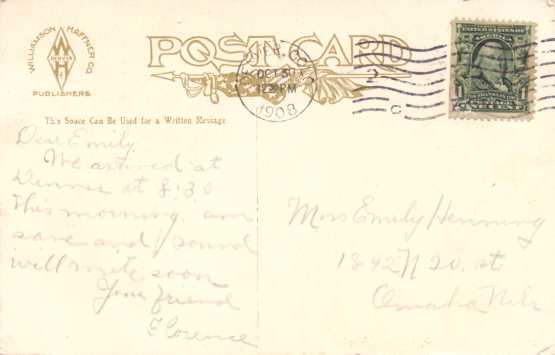 WILLIAMSON HAFFNER CO
DENVER
PUBLISHERS
POST CARD
OCT 30
12 30 PM
1908
2
C
This Space Can Be Used for a Written Message.
Dear Emily,
We arrived at
Denver at 8:30
this morning. am
save and sound
will write soon
Your friend
Florence
Miss Emily Henning
1842 N 20. st
Omaha Neb.